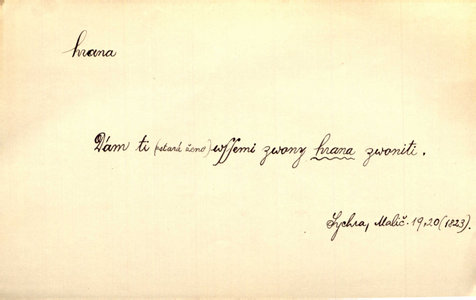 hrana
Dám ti (stará ženo) wssemi zwony hrana zwoniti.
Sychra, Malič. 19,20 (1823).